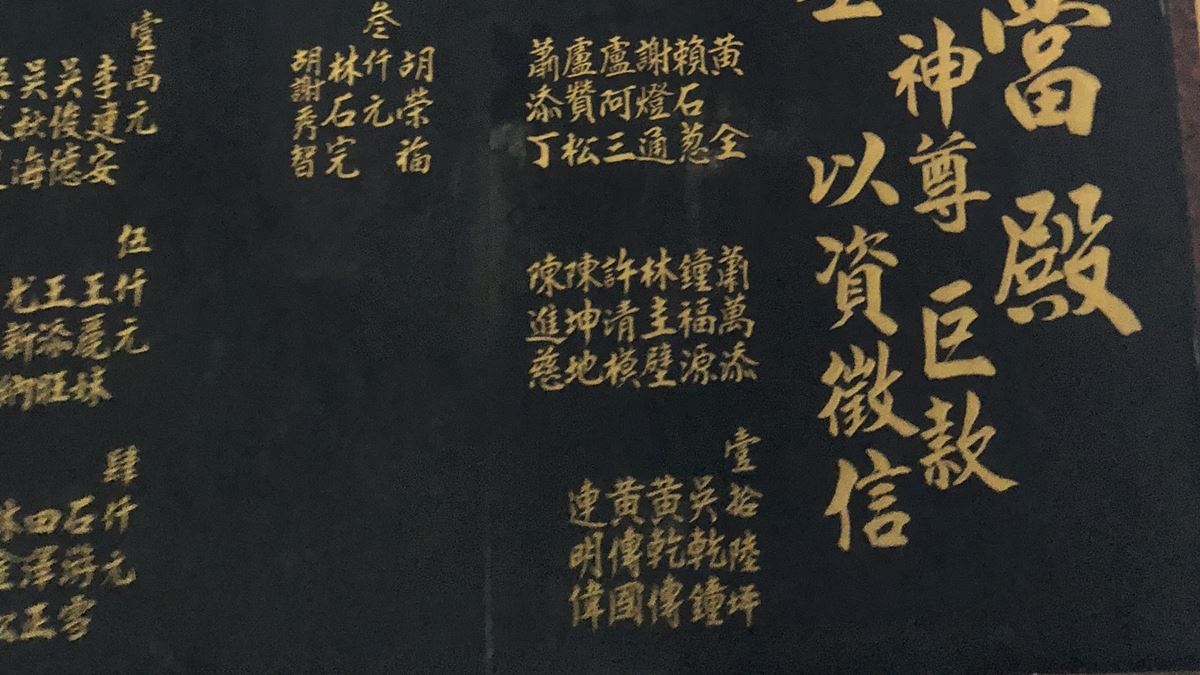 當殿
神尊 巨款
以資徵信
黃全
賴石蔥
謝燈通
盧阿三
盧贊松
蕭添丁
蕭萬添
鐘福源
林圭壁
許清模
陳坤地
陳進慈
壹拾陸坪
吳乾鐘
黃乾傳
黃傳國
連明偉
胡榮福
叁仟元
林石完
胡謝秀智
壹萬元
李建安
吳俊德
吳秋海
伍仟元
王麗妹
王添旺
尤新
肆仟元
石海雪
田澤王